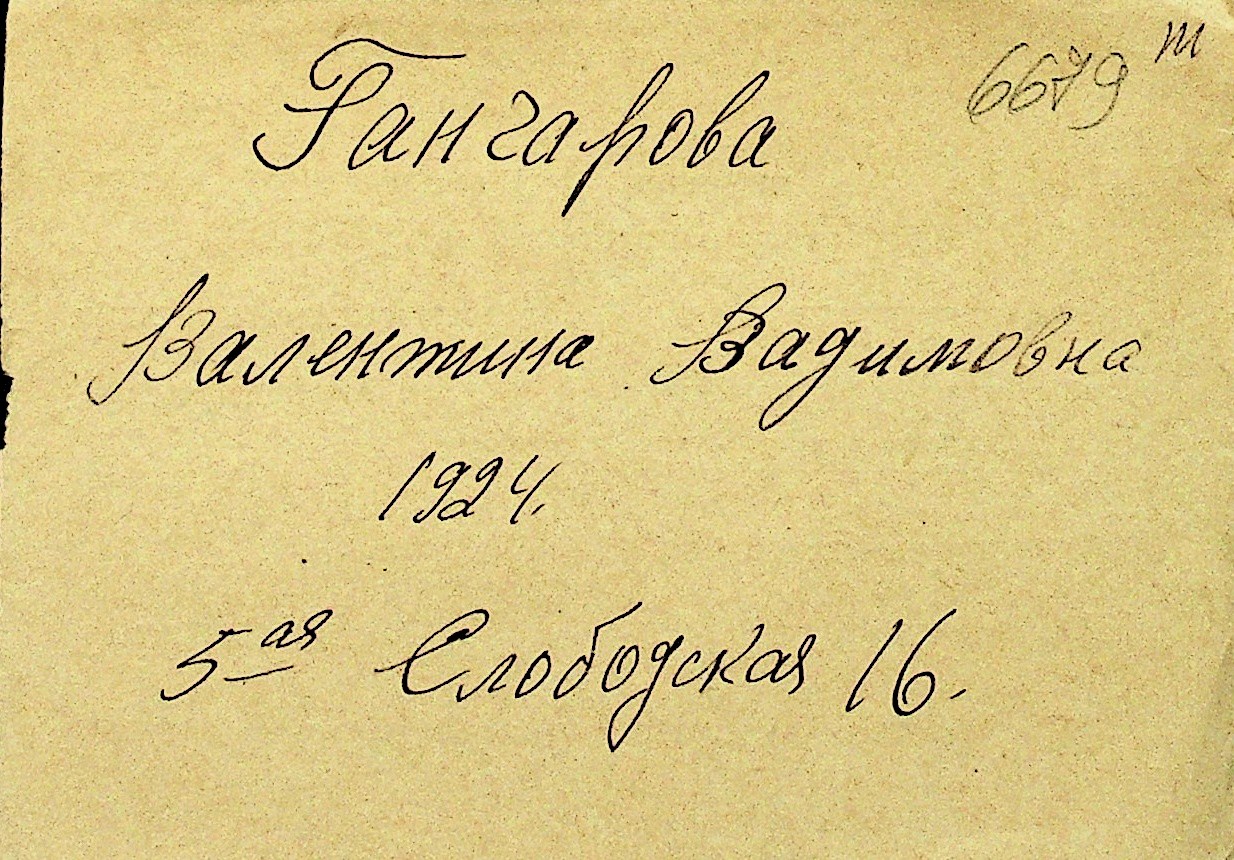 6679 т
Гангарова
Валентина Вадимовна
1924.
5ая Слободская 16.